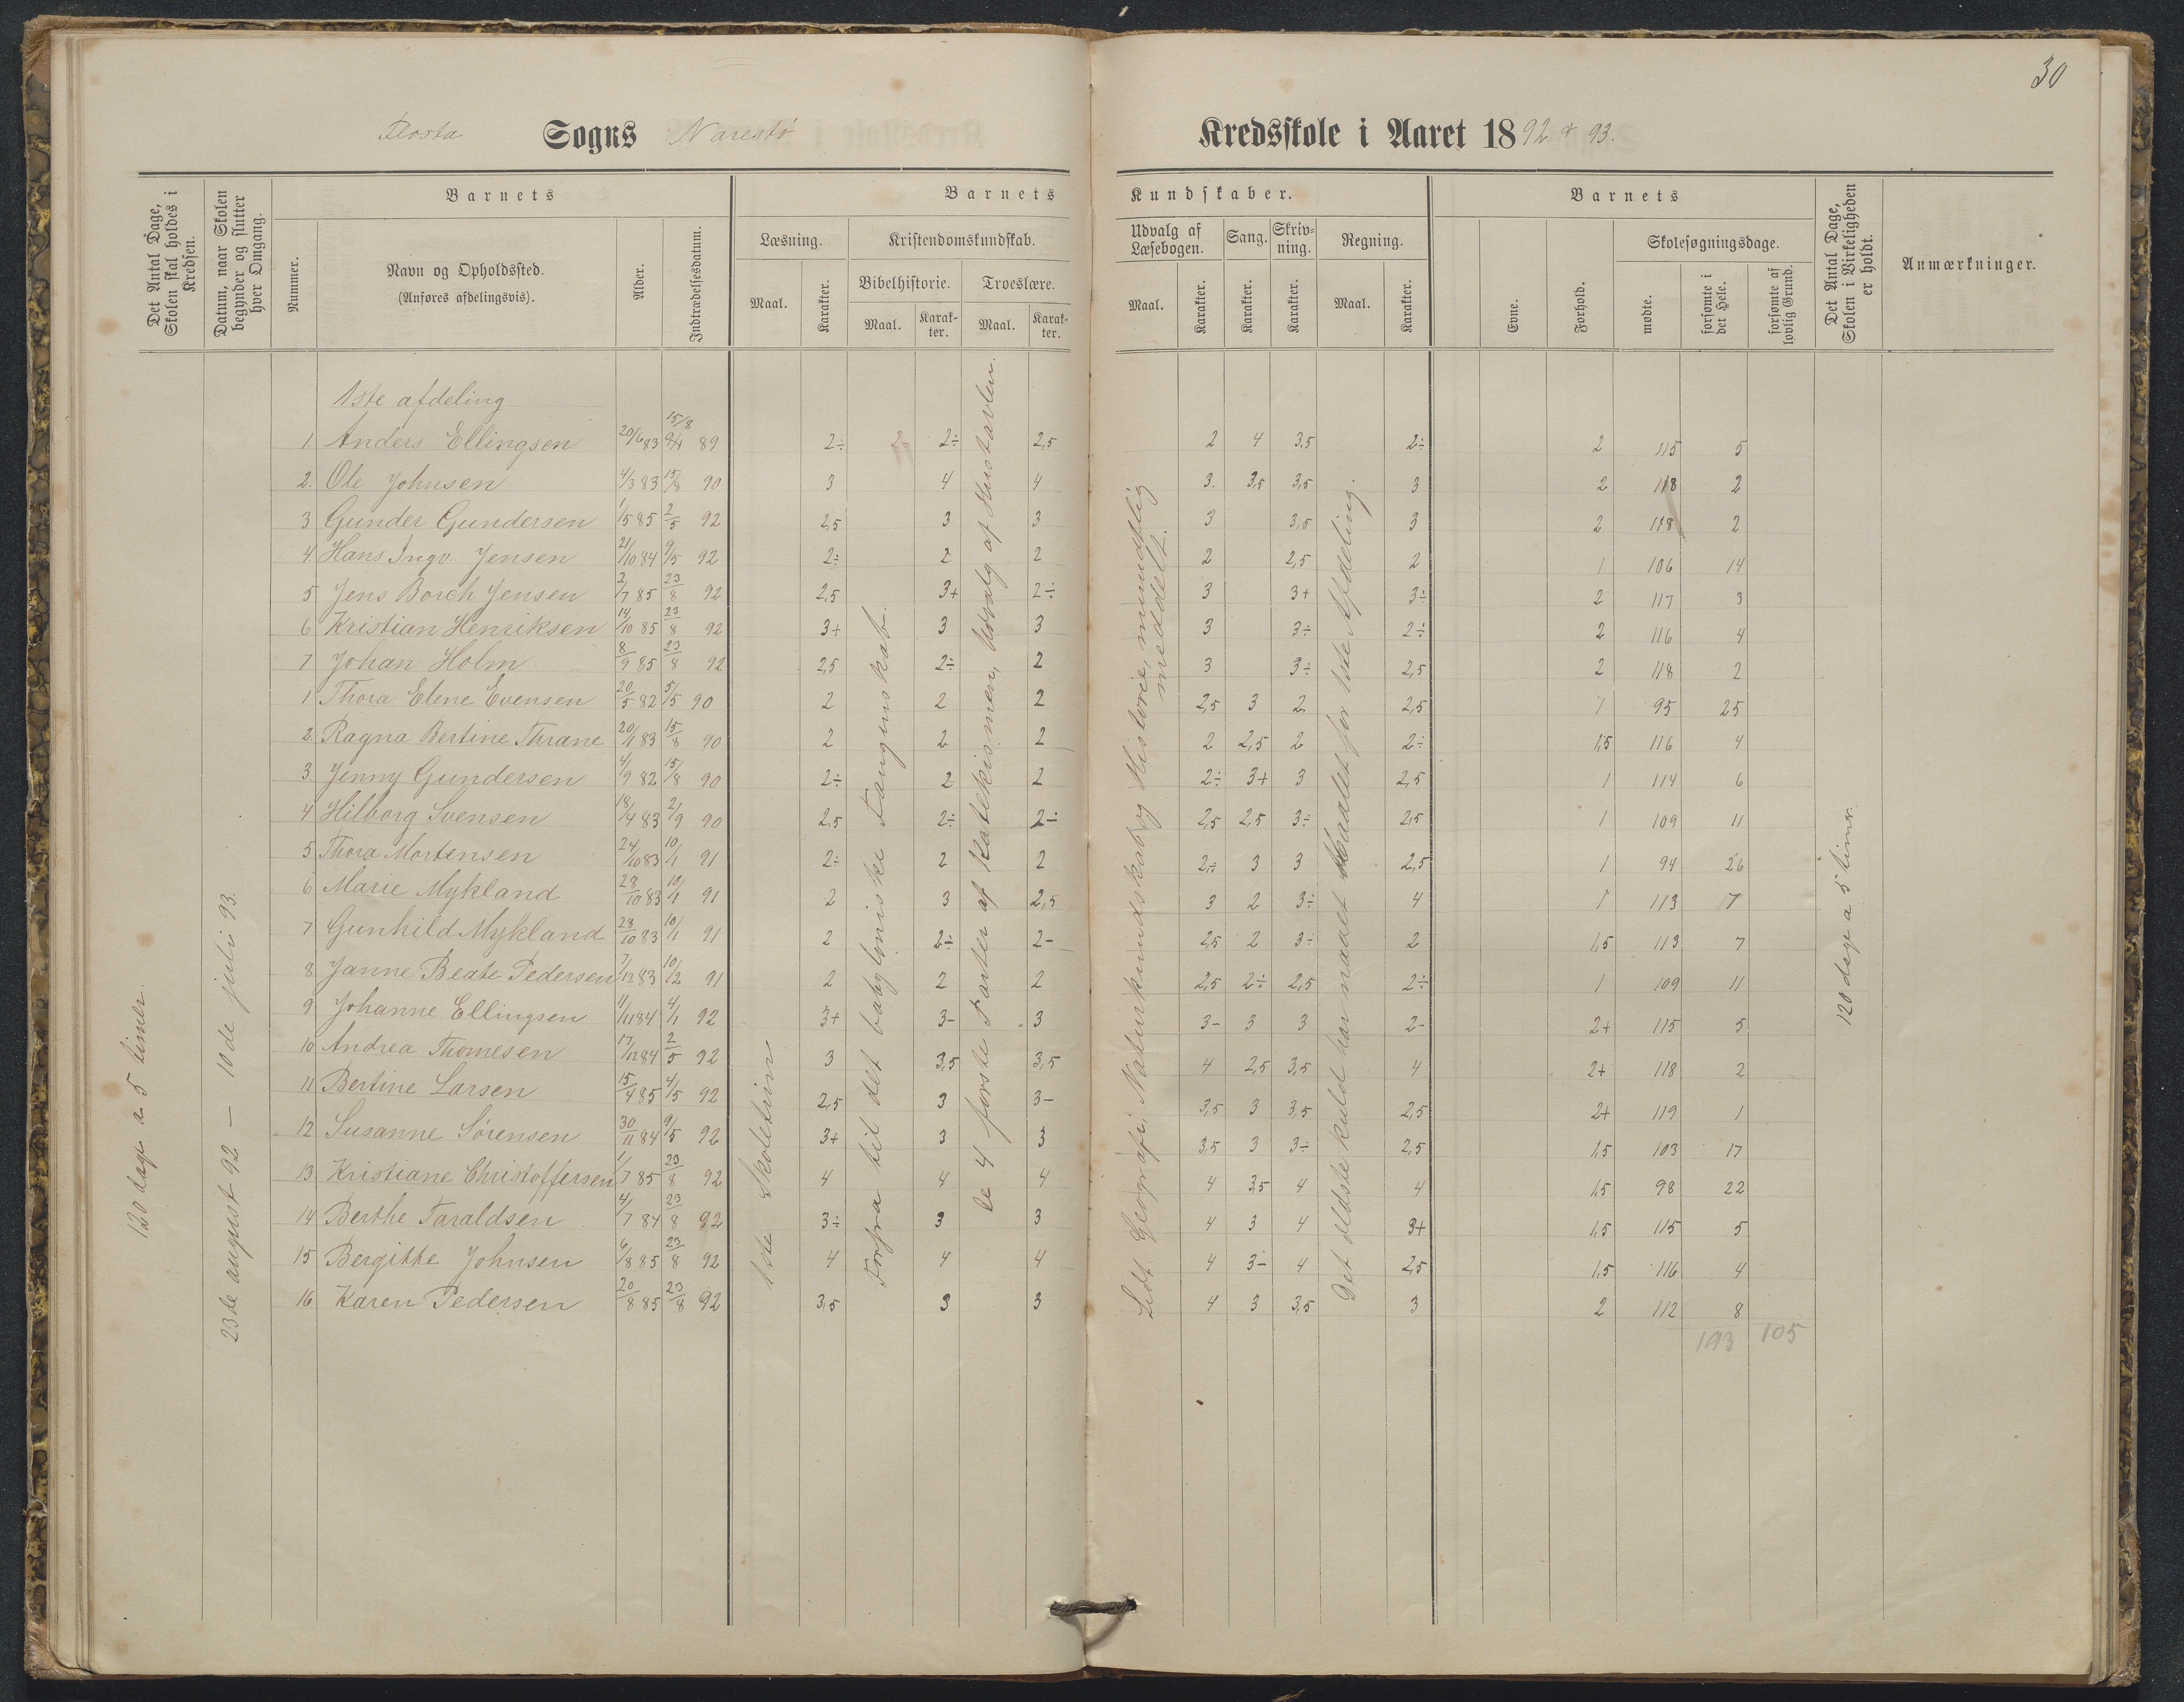 30
Flosta Sogns Narestö Kredsskole i Aaret 1892 & 93.
Det Antal Dage, Skolen skal holdes i Kredsen.
Datum, naar Skolen begynder og slutter hver Omgang.
Barnets
Nummer.
Navn og Opholdssted.
(Anføres afdelingsvis).
Alder.
Indtrædelsesdatum.
Barnets Kundskaber.
Læsning.
Maal.
Karakter.
Kristendomskundskab.
Bibelhistorie.
Maal.
Karakter.
Troeslære.
Maal.
Karakter.
Udvalg af Læsebogen.
Maal.
Karakter.
Sang.
Karakter.
Skrivning.
Karakter.
Regning.
Maal.
Karakter.
Barnets
Evne.
Forhold.
Skolesøgningsdage.
mødte.
forsømte i det Hele.
forsømte af lovlig Grund.
Det Antal Dage, Skolen i Virkeligheden er holdt.
Anmærkninger.
120 dage a 5 timer.
23de august 92 — 10de juli 93.
1ste Skoletrin
Forfra til det babyloniske Fangenskab.
De 4 første Parter af Katekismen, Udvalg af Hustavlen.
Lidt Geografi, Naturkundskab og Historie, mundtlig meddelt.
Det ældste kuld har naaet Maalet for 1ste Afdeling.
120 dage a 5 timer
1ste afdeling
1. Anders Ellingsen 20/6 83 15/8 89 2÷ 2÷ 2,5 2 4 3,5 2÷ 2 115 5
2. Ole Johnsen 4/3 83 15/8 90 3 4 4 3. 3,5 3,5 3 2 118 2
3 Gunder Gundersen 1/5 85 2/5 92 2,5 3 3 3 3,5 3 2 118 2
4. Hans Ingv. Jensen 21/10 84 9/5 92 2÷ 2 2 2 2,5 2 1 106 14
5 Jens Borch Jensen 2/7 85 23/8 92 2,5 3+ 2÷ 3 3+ 3÷ 2 117 3
6 Kristian Henriksen 14/10 85 23/8 92 3+ 3 3 3 3÷ 2÷ 2 116 4
7 Johan Holm 8/9 85 23/8 92 2,5 2÷ 2 3 3÷ 2,5 2 118 2
1 Thora Elene Evensen 20/5 82 5/5 90 2 2 2 2,5 3 2 2,5 1 95 25
2 Ragna Bertine Thrane 20/1 83 15/8 90 2 2 2 2 2,5 2 2÷ 1,5 116 4
3 Jenny Gundersen 4/9 82 15/8 90 2÷ 2 2 2÷ 3+ 3 2,5 1 114 6
4 Hilborg Svensen 18/4 83 2/9 90 2,5 2÷ 2÷ 2,5 2,5 3÷ 2,5 1 109 11
5 Thora Mortensen 24/10 83 10/1 91 2÷ 2 2 2÷ 3 3 2,5 1 94 26
6 Marie Mykland 28/10 83 10/1 91 2 3 2,5 3 2 3÷ 4 1 113 7
7 Gunhild Mykland 28/10 83 10/1 91 2 2÷ 2- 2,5 2 3÷ 2 1,5 113 7
8 Janne Beate Pedersen 7/12 83 10/2 91 2 2 2 2,5 2÷ 2,5 2÷ 1 109 11
9 Johanne Ellingsen 11/11 84 4/1 92 3+ 3- 3 3- 3 3 2- 2+ 115 5
10 Andrea Thomesen 17/12 84 2/5 92 3 3,5 3,5 4 2,5 3,5 4 2+ 118 2
11 Bertine Larsen 15/4 85 4/5 92 2,5 3 3- 3,5 3 3,5 2,5 2+ 119 1
12 Susanne Sörensen 30/11 84 9/5 92 3+ 3 3 3,5 3 3÷ 2,5 1,5 103 17
13 Kristiane Christoffersen 1/7 85 23/8 92 4 4 4 4 3,5 4 4 1,5 98 22
14 Berthe Taraldsen 4/7 84 23/8 92 3÷ 3 3 4 3 4 3+ 1,5 115 5
15 Bergitte Johnsen 6/8 85 23/8 92 4 4 4 4 3- 4 2,5 1,5 116 4
16 Karen Pedersen 20/8 85 23/8 92 3,5 3 3 4 3 3,5 3 2 112 8
193 105